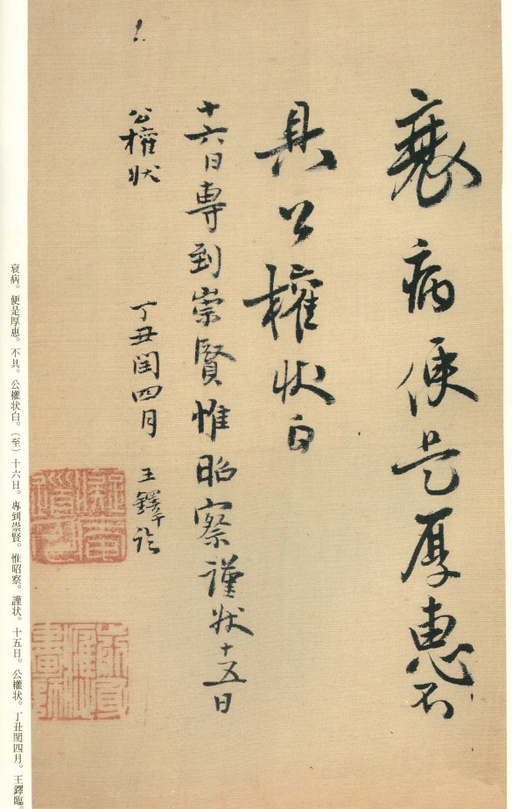 衰病便是厚惠不
具公權状白
十六日専到崇賢惟昭察謹状十五日
公權状
丁丑閏四月 王鐸臨
衰病。便是厚惠。不具。公權状白。（至）十六日。專到崇賢。惟昭察。謹状。十五日。公權状。丁丑閏四月。王鐸臨。